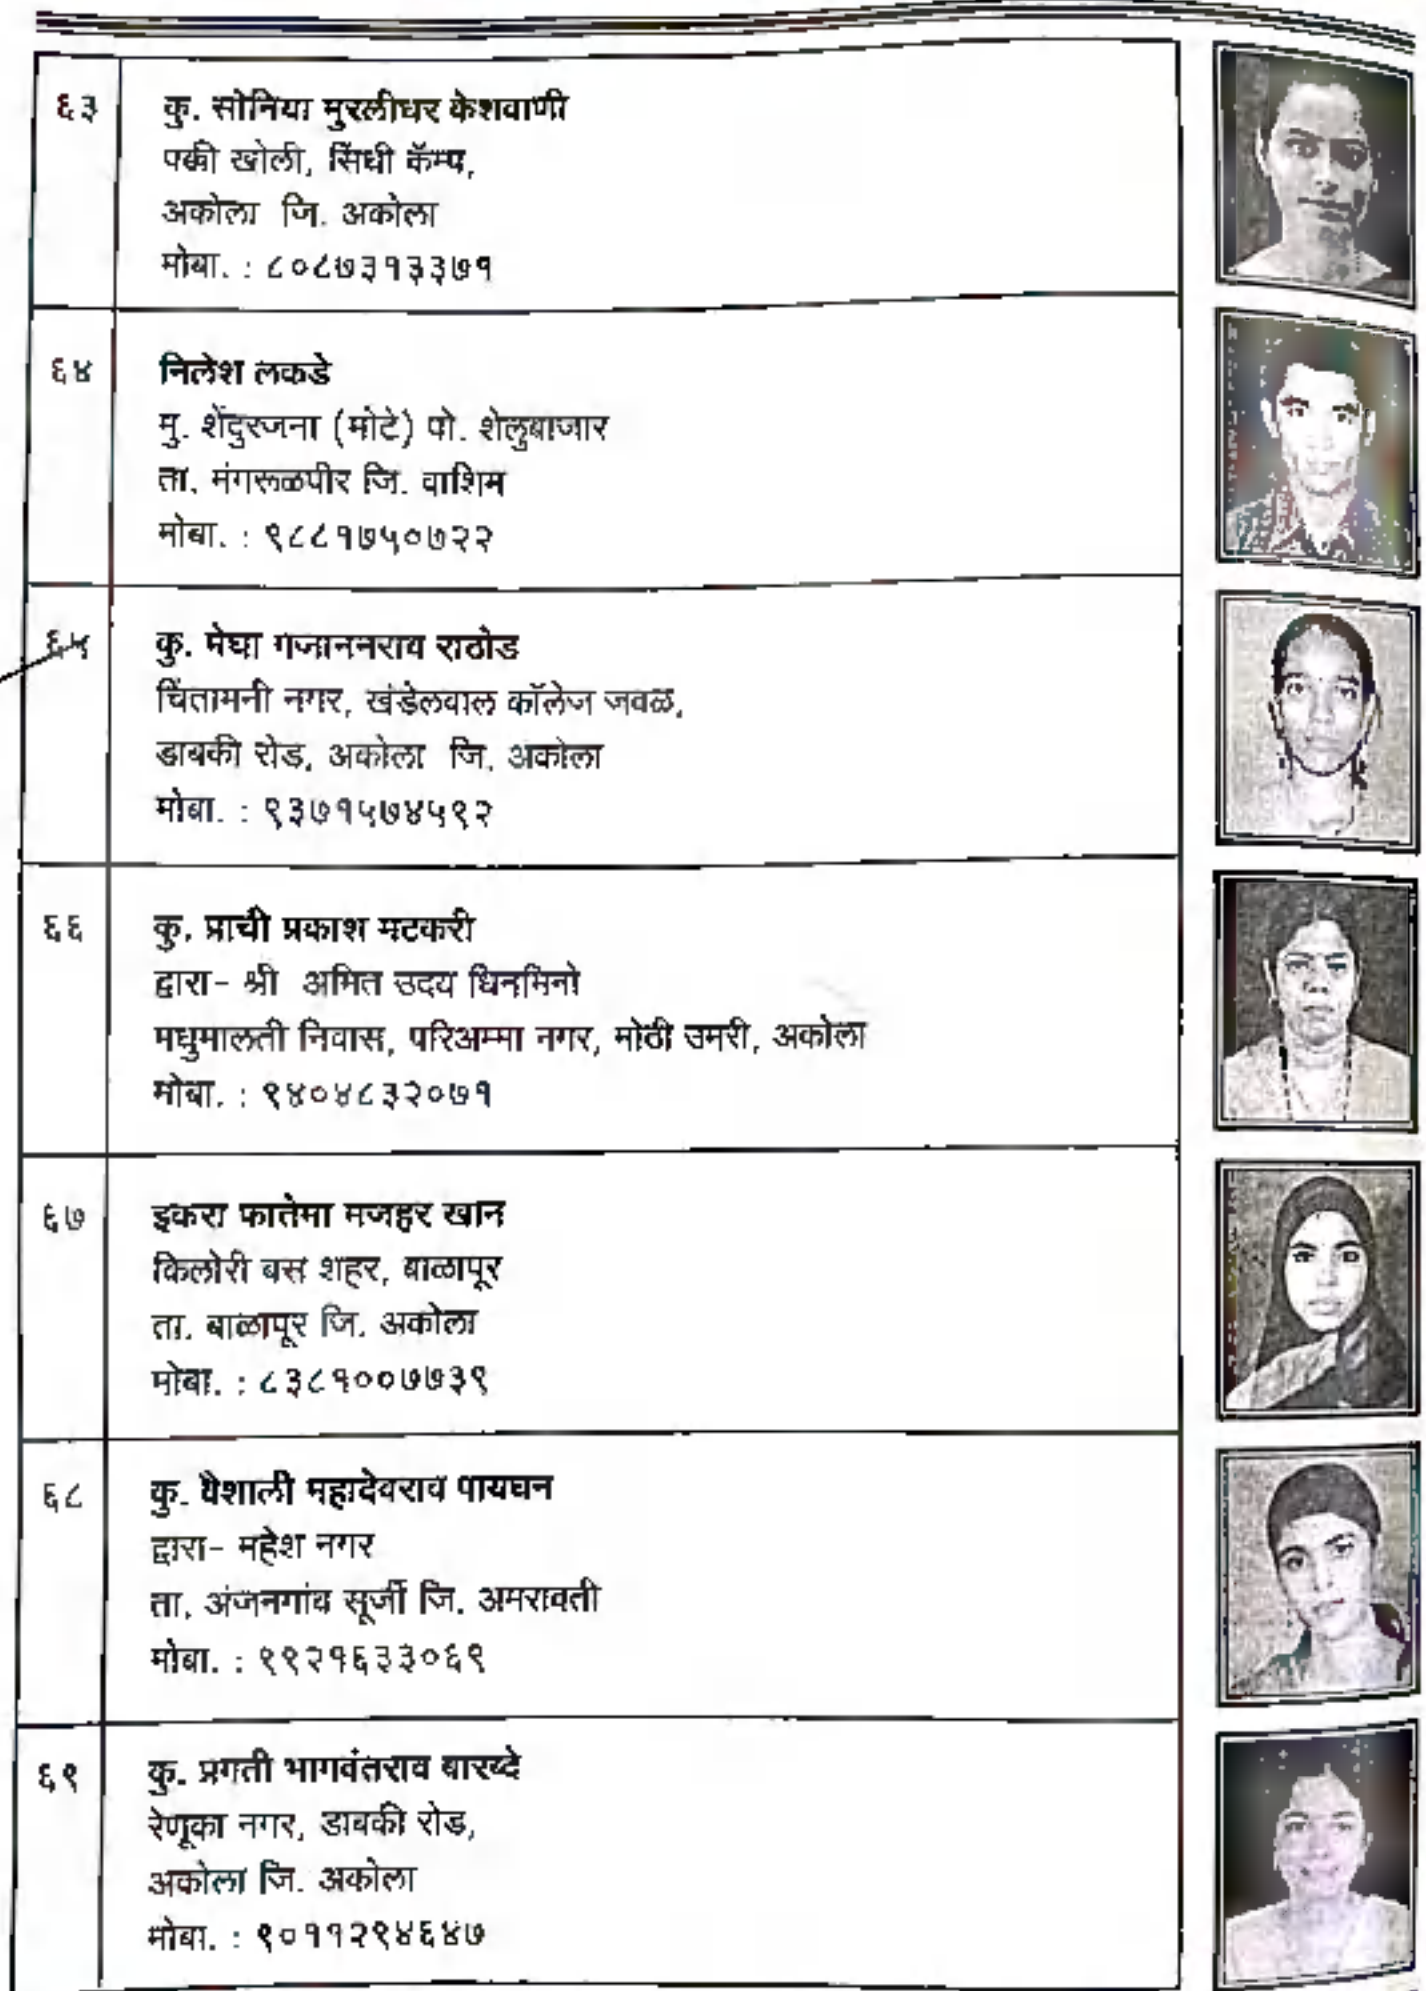 ६३
कु. सोनिया मुरलीधर केशवाणी
पक्की खोली, सिंधी कॅम्प,
अकोला जि. अकोला
मोबा. : ८०८७३१३३७१
६४
निलेश लकडे
मु. शेंदुरजना (मोटे) पो. शेलुबाजार
ता. मंगरूळपीर जि. वाशिम
मोबा. : ९८८१७५०७२२
६५
कु. मेघा गजाननराव राठोड
चिंतामनी नगर, खंडेलवाल कॉलेज जवळ,
डाबकी रोड, अकोला जि. अकोला
मोबा. : ९३७१५७४५९२
६६
कु. प्राची प्रकाश मटकरी
द्वारा- श्री अमित उदय धिनमिनो
मधुमालती निवास, परिअम्मा नगर, मोठी उमरी, अकोला
मोबा. : ९४०४८३२०७१
६७
इकरा फातेमा मजहर खान
किलोरी बस शहर, बाळापूर
ता. बाळापूर जि. अकोला
मोबा. : ८३८१००७७३९
६८
कु. वैशाली महादेवराव पायघन
द्वारा- महेश नगर
ता. अंजनगांव सूर्जी जि. अमरावती
मोबा. : ९९२१६३३०६९
६९
कु. प्रगती भागवंतराव बारब्दे
रेणूका नगर, डाबकी रोड,
अकोला जि. अकोला
मोबा. : ९०११२९४६४७